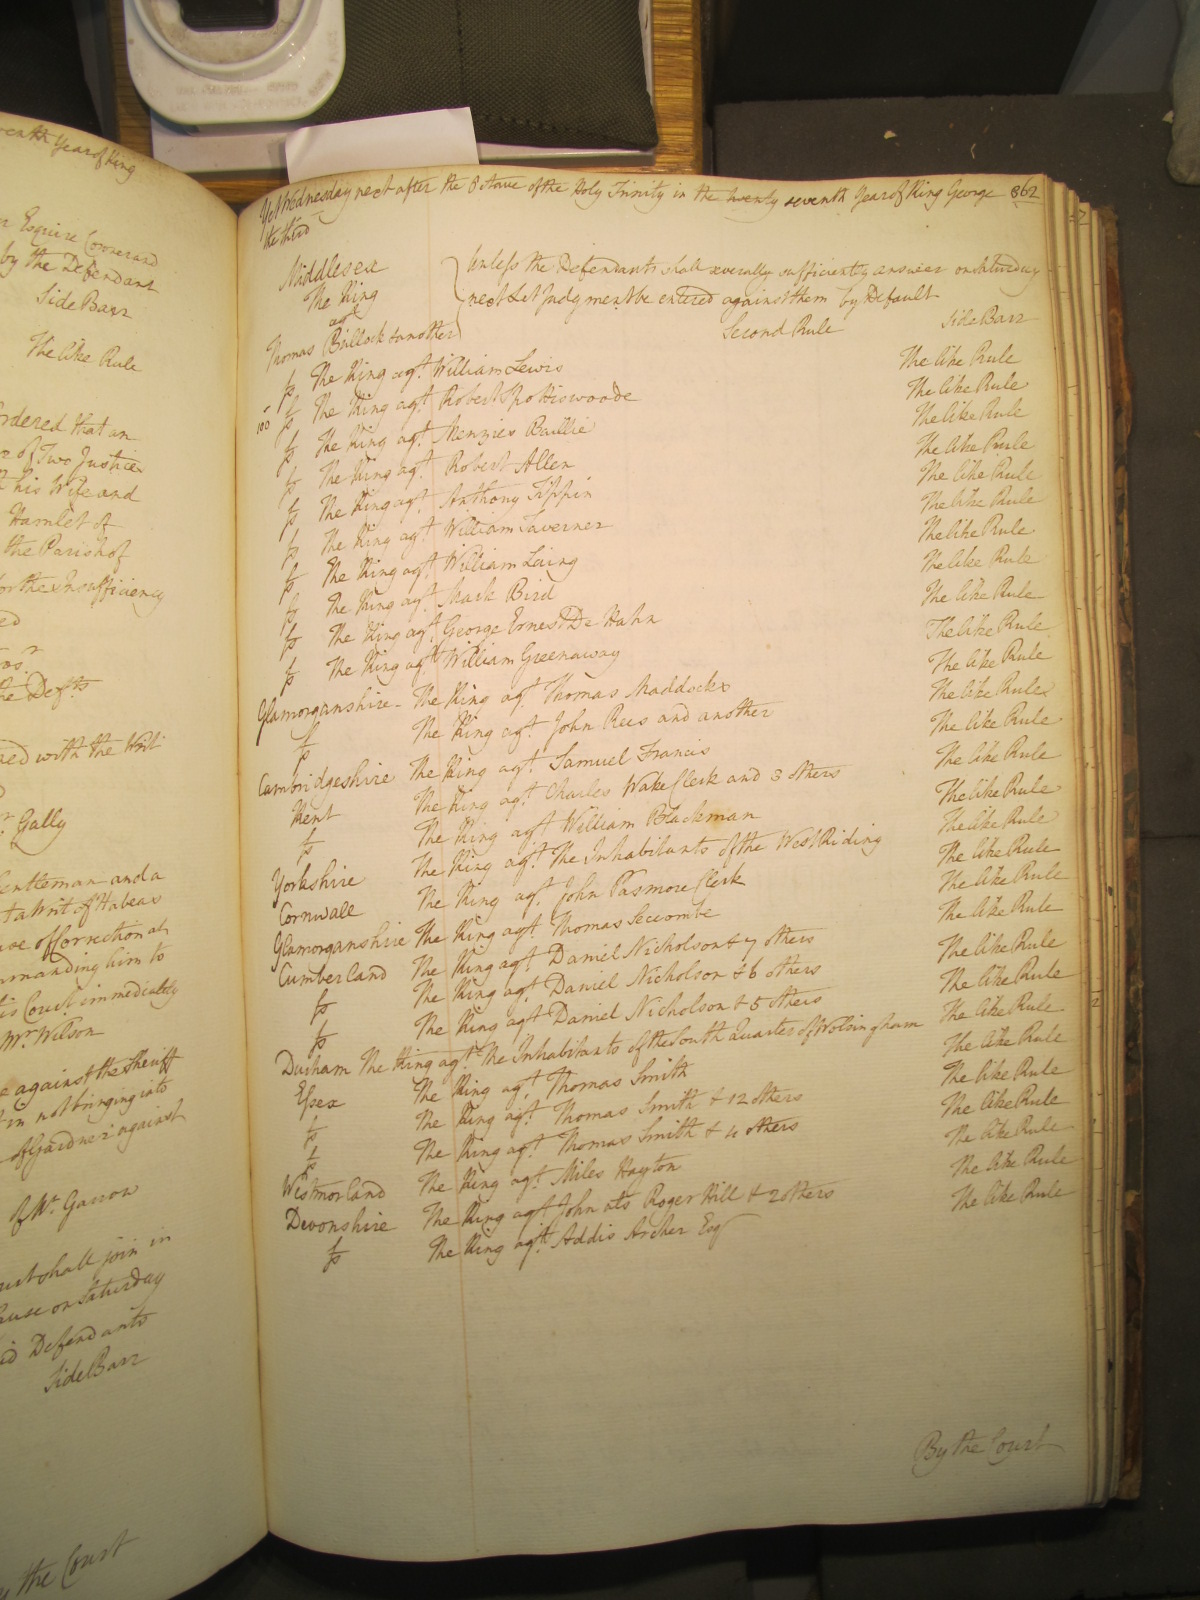 enth Year of King
r Esquire Coroner and
by the Defendant
Side Barr
The like Rule
rdered that an
r of Two Justices
his Wife and
Hamlet of
the Parish of
for the Insufficiency
ed
the Defts
ned with the Writ
Gally
Gentleman and a
t a Writ of Habeas
use of Correction at
mmanding him to
is Court immediately
Mr. Wilson
e against the Sheriff
t in not bringing into
of Gardner against
of Mr. Garrow
urt shall join in
ause on Saturday
id Defendants
Side Barr
the Court
Yet Wednesday next after the Octave of the Holy Trinity in the twenty seventh Year of King George 862
the third
Middlesex
The King
agt
Thomas Bullock & another
Unless the Defendants shall severally sufficiently answer on Saturday
next Let Judgment be entered against them by Default
Second Rule Side Barr
fs The King agt. William Lewis The like Rule
100 fs The King agt. Robert Spottiswoode The like Rule
fs The King agt. Menzies Baillie The like Rule
fs The King agt. Robert Allen The like Rule
fs The King agt. Anthony Tippin The like Rule
fs The King agt. William Taverner The like Rule
fs The King agt. William Laing The like Rule
fs The King agt. Mark Bird The like Rule
fs The King agt. George Ernest De Hahn The like Rule
fs The King agt. William Greenaway The like Rule
Glamorganshire - The King agt. Thomas Maddocks The like Rule
fs The King agt. John Rees and another The like Rule
Cambridgeshire The King agt. Samuel Francis The like Rule
Kent The King agt. Charles Wake Clerk and 3 others The like Rule
fs The King agt. William Blackman The like Rule
Yorkshire The King agt. The Inhabitants of the West Riding The like Rule
Cornwall The King agt. John Pasmore Clerk The like Rule
Glamorganshire The King agt. Thomas Seccombe The like Rule
Cumberland The King agt. Daniel Nicholson & 7 others The like Rule
fs The King agt. Daniel Nicholson & 6 others The like Rule
fs The King agt. Daniel Nicholson & 5 others The like Rule
Durham The King agt. The Inhabitants of the South Quarter of Wolsingham The like Rule
Essex The King agt. Thomas Smith The like Rule
fs The King agt. Thomas Smith & 12 others The like Rule
fs The King agt. Thomas Smith & 4 others The like Rule
Westmorland The King agt. Miles Hayton The like Rule
Devonshire The King agt John als Roger Hill & 2 others The like Rule
fs The King agt. Addis Archer Esqr The like Rule
By the Court